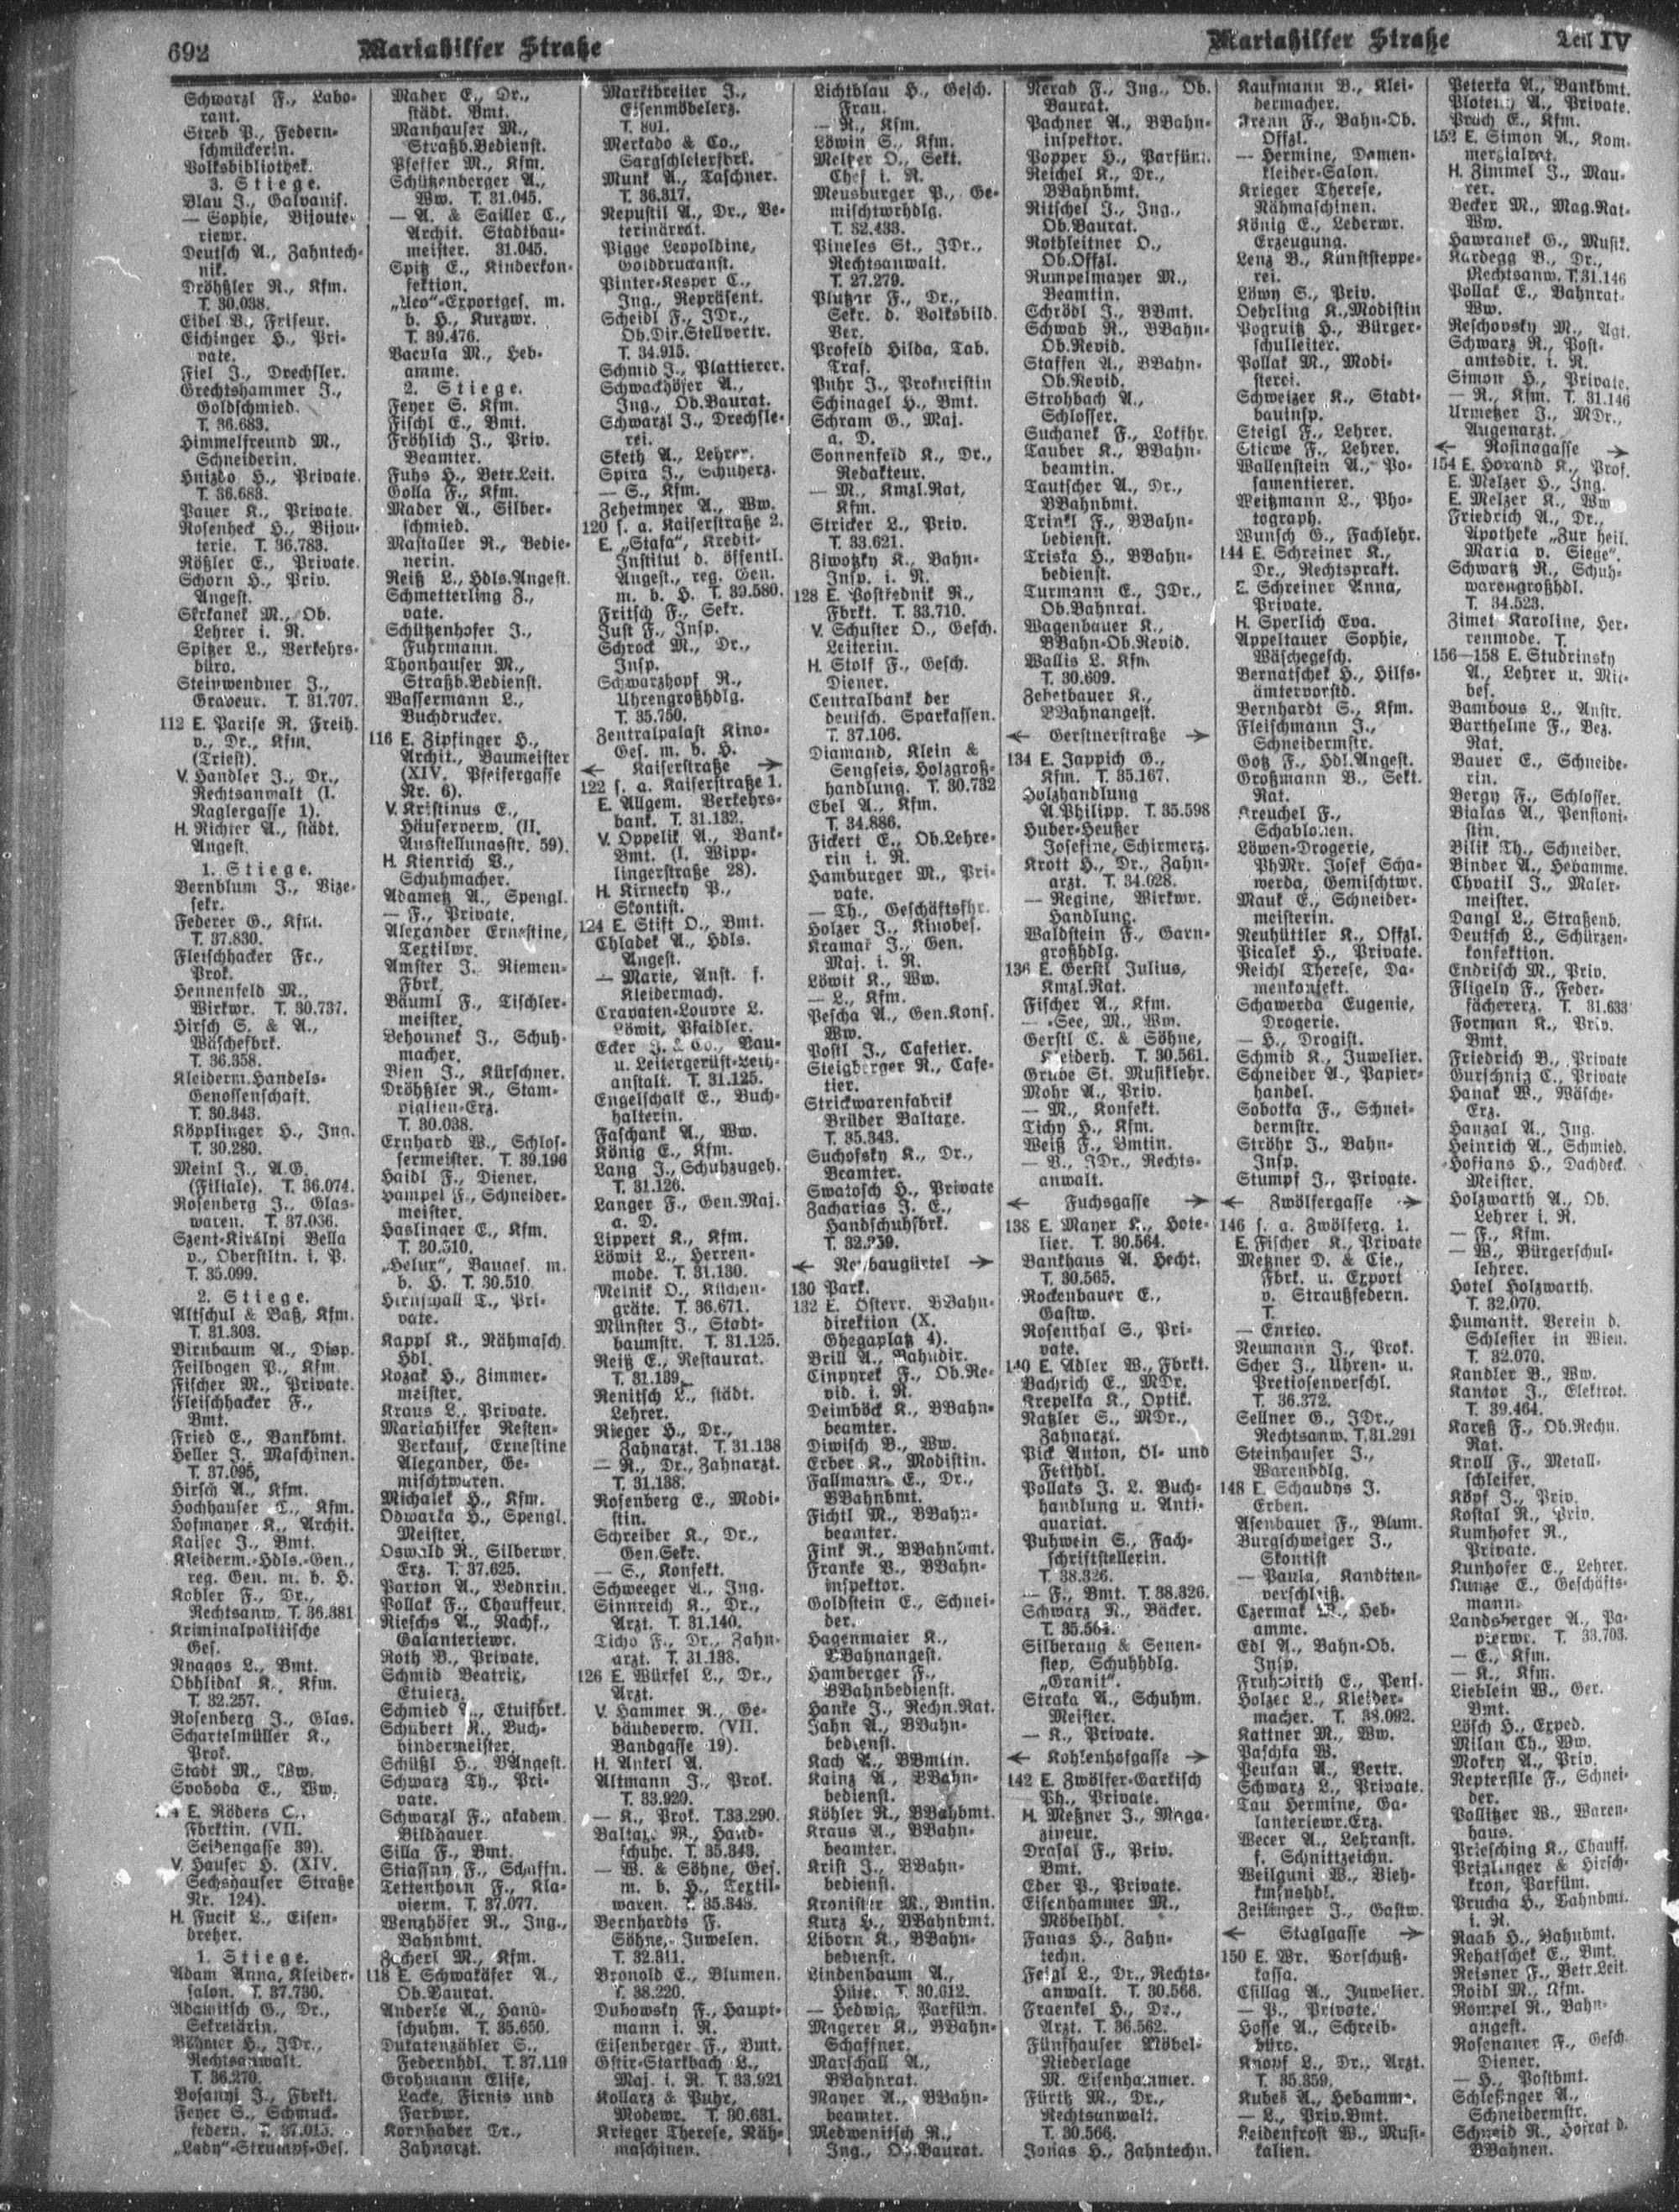 692
Mariahilfer Straße
Mariahilfer Straße
Teil IV
Schwarzl F., Labo-
rant.
Streb P., Federn-
schmückerin.
Volksbibliothek.
3. Stiege.
Blau J., Galvanis.
— Sophie, Bijoute-
riewr.
Deutsch A., Zahntech-
nik.
Dröhßler R., Kfm.
T. 30.038.
Eibel V., Friseur.
Eichinger H., Pri-
vate.
Fiel J., Drechsler.
Grechtshammer J.,
Goldschmied.
T. 36.683.
Himmelfreund M.,
Schneiderin.
Hnizdo H., Private.
T. 36.683.
Pauer K., Private.
Rosenheck H., Bijou-
terie. T. 36.783.
Rößler E., Private.
Schorn H., Priv.
Angest.
Skrkanek M., Ob.
Lehrer i. R.
Spitzer L., Verkehrs-
büro.
Steinwendner J.,
Graveur. T. 31.707.
112 E. Parise R. Freih.
v., Dr., Kfm.
(Triest).
V. Handler J., Dr.,
Rechtsanwalt (I.
Naglergasse 1).
H. Richter A., städt.
Angest.
1. Stiege.
Bernblum J., Vize-
sekr.
Federer G., Kfm.
T. 37.830.
Fleischhacker Fr.,
Prok.
Hennenfeld M.,
Wirkwr. T. 30.737.
Hirsch S. & A.,
Wäschefbrk.
T. 36.358.
Kleiderm.Handels-
Genossenschaft.
T. 30.343.
Köpplinger H., Ing.
T. 30.280.
Meinl J., A.G.
(Filiale). T. 36.074.
Rosenberg J., Glas-
waren. T. 37.036.
Szent-Királyi Bella
v., Oberstltn. i. P.
T. 35.099.
2. Stiege.
Altschul & Baß, Kfm.
T. 31.303.
Birnbaum A., Disp.
Feilbogen P., Kfm.
Fischer M., Private.
Fleischhacker F.,
Bmt.
Fried E., Bankbmt.
Heller J. Maschinen.
T. 37.095.
Hirsch A., Kfm.
Hochhauser C., Kfm.
Hofmayer K., Archit.
Kaiser J., Bmt.
Kleiderm.-Hdls.-Gen.,
reg. Gen. m. b. H.
Kobler F., Dr.,
Rechtsanw. T. 36.381
Kriminalpolitische
Ges.
Nyagos L., Bmt.
Obhlidal K., Kfm.
T. 32.257.
Rosenberg J., Glas.
Schartelmüller K.,
Prok.
Stadt M., Ww.
Svoboda E., Ww.
E. Röders C.,
Fbrktin. (VII.
Seidengasse 39).
V. Hauser H. (XIV.
Sechshauser Straße
Nr. 124).
H. Fucik L., Eisen-
dreher.
1. Stiege.
Adam Anna, Kleider-
salon. T. 37.730.
Adamitsch G., Dr.,
Sekretärin.
Böhmer H., JDr.,
Rechtsanwalt.
T. 36.270.
Bosanyi J., Fbrkt.
Feyer S., Schmuck-
federn. T. 37.015.
„Lady“-Strumpf-Ges.
Mader E., Dr.,
städt. Bmt.
Manhauser M.,
Straßb.Bedienst.
Pfeffer M., Kfm.
Schützenberger A.,
Ww. T. 31.045.
— A. & Sailler C.,
Archit. Stadtbau-
meister. 31.045.
Spitz E., Kinderkon-
fektion.
„Uco“-Exportges. m.
b. H., Kurzwr.
T. 39.476.
Vacula M., Heb-
amme.
2. Stiege.
Feyer S. Kfm.
Fischl E., Bmt.
Fröhlich J., Priv.
Beamter.
Fuhs H., Betr.Leit.
Golla F., Kfm.
Mader A., Silber-
schmied.
Mastaller R., Bedie-
nerin.
Reiß L., Hdls.Angest.
Schmetterling Z.,
vate.
Schützenhofer J.,
Fuhrmann.
Thonhauser M.,
Straßb.Bedienst.
Wassermann L.,
Buchdrucker.
116 E. Zipfinger H.,
Archit., Baumeister
(XIV. Pfeifergasse
Nr. 6).
V. Kristinus E.,
Häuserverw. (II.
Ausstellungsstr. 59).
H. Kienrich V.,
Schuhmacher.
Adametz A., Spengl.
— F., Private.
Alexander Ernestine,
Textilwr.
Amster J. Riemen-
Fbrk.
Bäuml F., Tischler-
meister.
Behounek J., Schuh-
macher.
Bien J., Kürschner.
Dröhßler R., Stam-
piglien-Erz.
T. 30.038.
Ernhard W., Schlos-
sermeister. T. 39.196
Haidl F., Diener.
Hampel F., Schneider-
meister.
Haslinger E., Kfm.
T. 30.510.
„Helux“, Bauges. m.
b. H. T. 30.510.
Hirnschall T., Pri-
vate.
Kappl K., Nähmasch.
Hdl.
Kozak H., Zimmer-
meister.
Kraus L., Private.
Mariahilfer Resten-
Verkauf, Ernestine
Alexander, Ge-
mischtwaren.
Michalek H., Kfm.
Odwarka H., Spengl.
Meister.
Oswald R., Silberwr.
Erz. T. 37.625.
Parton A., Bednrin.
Pollak F., Chauffeur.
Rieschs A., Nachf.,
Galanteriewr.
Roth B., Private.
Schmid Beatrix,
Etuierz.
Schmied, Etuisfbrk.
Schubert R., Buch-
bindermeister.
Schüßl H., BAngest.
Schwarz Th., Pri-
vate.
Schwarzl F., akadem.
Bildhauer.
Silla F., Bmt.
Stiassny F., Schaffn.
Tettenhorn F., Kla-
vierm. T. 37.077.
Wenzhöfer R., Ing.,
Bahnbmt.
Zacherl M., Kfm.
118 E. Schwakäfer A.,
Ob.Baurat.
Anderle A., Hand-
schuhm. T. 35.650.
Dukatenzähler S.,
Federnhdl. T. 37.119
Grohmann Elise,
Lacke, Firnis und
Farbwr.
Kornhaber Dr.,
Zahnarzt.
Marktbreiter J.,
Eisenmöbelerz.
T. 801.
Merkado & Co.,
Sargschleierfbrk.
Munk A., Taschner.
T. 36.317.
Nepustil A., Dr., Ve-
terinärrat.
Pigge Leopoldine,
Golddruckanst.
Pinter-Kesper C.,
Ing., Repräsent.
Scheidl F., JDr.,
Ob.Dir.Stellvertr.
T. 34.915.
Schmid J., Plattierer.
Schwackhöfer A.,
Ing., Ob.Baurat.
Schwarzl J., Drechsle-
rei.
Sketh A., Lehrer.
Spira J., Schuherz.
— S., Kfm.
Zehetmyer A., Ww.
120 s. a. Kaiserstraße 2.
E. „Stafa“, Kredit-
Institut d. öffentl.
Angest., reg. Gen.
m. b. H. T. 39.580.
Fritsch F., Sekr.
Just F., Insp.
Schrock M., Dr.,
Insp.
Schwarzhopf R.,
Uhrengroßhdlg.
T. 35.750.
Zentralpalast Kino-
Ges. m. b. H.
← Kaiserstraße →
122 s. a. Kaiserstraße 1.
E. Allgem. Verkehrs-
bank. T. 31.132.
V. Oppelik A., Bank-
Bmt. (I. Wipp-
lingerstraße 28).
H. Kirnecky P.,
Skontist.
124 E. Stift O., Bmt.
Chladek A., Hdls.
Angest.
— Marie, Anst. f.
Kleidermach.
Cravaten-Louvre L.
Löwit, Pfaidler.
Ecker J. & Co., Bau-
u. Leitergerüst-Leih-
anstalt. T. 31.125.
Engelschalk E., Buch-
halterin.
Faschank A., Ww.
König E., Kfm.
Lang J., Schuhzugeh.
T. 31.126.
Langer F., Gen.Maj.
a. D.
Lippert K., Kfm.
Löwit L., Herren-
mode. T. 31.130.
Melnik O., Küchen-
gräte. T. 36.671.
Münster J., Stadt-
baumstr. T. 31.125.
Reiß E., Restaurat.
T. 31.139.
Renitsch L., städt.
Lehrer.
Rieger H., Dr.,
Zahnarzt. T. 31.138
— R., Dr., Zahnarzt.
T. 31.138.
Rosenberg E., Modi-
stin.
Schreiber K., Dr.,
Gen.Sekr.
— S., Konfekt.
Schweeger A., Ing.
Sinnreich K., Dr.,
Arzt. T. 31.140.
Ticho F., Dr., Zahn-
arzt. T. 31.138.
126 E. Würfel L., Dr.,
Arzt.
V. Hammer R., Ge-
bäudeverw. (VII.
Bandgasse 19).
H. Ankerl A.
Altmann J., Prok.
T. 33.920.
— K., Prok. T.33.290.
Baltaxe M., Hand-
schuhe. T. 35.343.
— W. & Söhne, Ges.
m. b. H., Textil-
waren. T. 35.343.
Bernhardts F.
Söhne, Juwelen.
T. 32.311.
Bronold E., Blumen.
T. 38.220.
Dubowsky F., Haupt-
mann i. R.
Eisenberger F., Bmt.
Gstir-Starkbach L.,
Maj. i. R. T. 33.921
Kollarz & Puhr,
Modewr. T. 30.631.
Krieger Therese, Näh-
maschinen.
Lichtblau H., Gesch.
Frau.
— R., Kfm.
Löwin S., Kfm.
Melzer O., Sekt.
Chef i. R.
Meusburger P., Ge-
mischtwrhdlg.
T. 32.433.
Pineles St., JDr.,
Rechtsanwalt.
T. 27.279.
Plutzar F., Dr.,
Sekr. d. Volksbild.
Ver.
Profeld Hilda, Tab.
Traf.
Puhr J., Prokuristin
Schinagel H., Bmt.
Schram G., Maj.
a. D.
Sonnenfeld K., Dr.,
Redakteur.
— M., Kmzl.Rat,
Kfm.
Stricker L., Priv.
T. 33.621.
Ziwotzky K., Bahn-
Insp. i. R.
128 E. Postrednik R.,
Fbrkt. T. 33.710.
V. Schuster O., Gesch.
Leiterin.
H. Stolf F., Gesch.
Diener.
Centralbank der
deutsch. Sparkassen.
T. 37.106.
Diamand, Klein &
Sengseis, Holzgroß-
handlung. T. 30.732
Ebel A., Kfm.
T. 34.886.
Fickert E., Ob.Lehre-
rin i. R.
Hamburger M., Pri-
vate.
— Th., Geschäftsfhr.
Holzer J., Kinobes.
Kramar J., Gen.
Maj. i. R.
Löwit K., Ww.
— L., Kfm.
Pescha A., Gen.Kons.
Ww.
Postl J., Cafetier.
Steigberger R., Cafe-
tier.
Strickwarenfabrik
Brüder Baltaxe.
T. 35.343.
Suchofsky K., Dr.,
Beamter.
Swatosch H., Private
Zacharias J. E.,
Handschuhfbrk.
T. 32.259.
← Neubaugürtel →
130 Park.
132 E. Österr. BBahn-
direktion (X.
Ghegaplatz 4).
Brill A., Bahndir.
Cinpyrek F., Ob.Re-
vid. i. R.
Deimböck K., BBahn-
beamter.
Diwisch B., Ww.
Erber K., Modistin.
Fallmann E., Dr.,
BBahnbmt.
Fichtl M., BBahn-
beamter.
Fink R., BBahnbmt.
Franke V., BBahn-
inspektor.
Goldstein E., Schnei-
der.
Hagenmaier K.,
BBahnangest.
Hamberger F.,
BBahnbedienst.
Hanke J., Rechn.Rat.
Jahn A., BBahn-
bedienst.
Kach A., BBmtin.
Kainz A., BBahn-
bedienst.
Köhler R., BBahbmt.
Kraus A., BBahn-
beamter.
Krist J., BBahn-
bedienst.
Kronister M., Bmtin.
Kurz H., BBahnbmt.
Liborn K., BBahn-
bedienst.
Lindenbaum A.,
Hüte. T. 30.612.
— Hedwig, Parfüm.
Magerer K., BBahn-
Schaffner.
Marschall A.,
BBahnrat.
Mayer A., BBahn-
beamter.
Medwenitsch R.,
Ing., Ob.Baurat.
Nerad F., Ing., Ob.
Baurat.
Pachner A., BBahn-
inspektor.
Popper H., Parfüm.
Reichel K., Dr.,
BBahnbmt.
Ritschel J., Ing.,
Ob.Baurat.
Rothleitner O.,
Ob.Offzl.
Rumpelmayer M.,
Beamtin.
Schrödl J., BBmt.
Schwab R., BBahn-
Ob.Revid.
Staffen A., BBahn-
Ob.Revid.
Strohbach A.,
Schlosser.
Suchanek F., Lokfhr.
Tauber K., BBahn-
beamtin.
Tautscher A., Dr.,
BBahnbmt.
Trinkl F., BBahn-
bedienst.
Triska H., BBahn-
bedienst.
Turmann E., JDr.,
Ob.Bahnrat.
Wagenbauer K.,
BBahn-Ob.Revid.
Wallis L. Kfm
T. 30.609.
Zehetbauer K.,
BBahnangest.
← Gerstnerstraße →
134 E. Jappich G.,
Kfm. T. 35.167.
Holzhandlung
A.Philipp. T. 35.598
Huber-Heußer
Josefine, Schirmerz.
Krott H., Dr., Zahn-
arzt. T. 34.028.
— Regine, Wirkwr.
Handlung.
Waldstein F., Garn-
großhdlg.
136 E. Gerstl Julius,
Kmzl.Rat.
Fischer A., Kfm.
— -See, M., Ww.
Gerstl C. & Söhne,
Kleiderh. T. 30.561.
Grube St. Musiklehr.
Mohr A., Priv.
— M., Konfekt.
Tichy H., Kfm.
Weiß F., Bmtin.
— V., JDr., Rechts-
anwalt.
← Fuchsgasse →
138 E. Mayer K., Hote-
lier. T. 30.564.
Bankhaus A. Hecht.
T. 30.565.
Rockenbauer E.,
Gastw.
Rosenthal S., Pri-
vate.
140 E. Adler W., Fbrkt.
Bachrich E., MDr.
Krepelka K., Optik.
Natzler S., MDr.,
Zahnarzt.
Pick Anton, Öl- und
Fetthdl.
Pollaks J. L. Buch-
handlung u. Anti-
quariat.
Puhwein S., Fach-
schriftstellerin.
T. 38.326.
— F., Bmt. T.38.326.
Schwarz N., Bäcker.
T. 35.564.
Silberaug & Senen-
siep, Schuhhdlg.
„Granit“.
Straka A., Schuhm.
Meister.
— K., Private.
← Kohlenhofgasse →
142 E. Zwölfer-Garkisch
Ph., Private.
H. Meßner J., Maga-
zineur.
Drasal F., Priv.
Bmt.
Eder P., Private.
Eisenhammer M.,
Möbelhdl.
Fanas H., Zahn-
techn.
Feigl L., Dr., Rechts-
anwalt. T. 30.566.
Fraenkel H., Dr.,
Arzt. T. 36.562.
Fünfhauser Möbel-
Niederlage
M. Eisenhammer.
Fürth M., Dr.,
Rechtsanwalt.
T. 30.566.
Jonas H., Zahntechn.
Kaufmann B., Klei-
dermacher.
Krenn F., Bahn-Ob.
Offzl.
— Hermine, Damen-
kleider-Salon.
Krieger Therese,
Nähmaschinen.
König E., Lederwr.
Erzeugung.
Lenz B., Kunststeppe-
rei.
Löwy S., Priv.
Oehrling K.,Modistin
Pogruitz H., Bürger-
schulleiter.
Pollak M., Modi-
sterei.
Schweizer K., Stadt-
bauinsp.
Steigl F., Lehrer.
Stiewe F., Lehrer.
Wallenstein A., Po-
samentierer.
Weißmann L., Pho-
tograph.
Wunsch G., Fachlehr.
144 E. Schreiner K.,
Dr., Rechtsprakt.
E. Schreiner Anna,
Private.
H. Sperlich Eva.
Appeltauer Sophie,
Wäschegesch.
Bernatschek H., Hilfs-
ämtervorstd.
Bernhardt S., Kfm.
Fleischmann J.,
Schneidermstr.
Götz F., Hdl.Angest.
Großmann B., Sekt.
Rat.
Kreuchel F.,
Schablonen.
Löwen-Drogerie,
PhMr. Josef Scha-
werda, Gemischtwr.
Mauk E., Schneider-
meisterin.
Neuhüttler K., Offzl.
Picalek H., Private.
Reichl Therese, Da-
menkonfekt.
Schawerda Eugenie,
Drogerie.
— H., Drogist.
Schmid K., Juwelier.
Schneider A., Papier-
handel.
Sobotka F., Schnei-
dermstr.
Ströhr J., Bahn-
Insp.
Stumpf J., Private.
← Zwölfergasse →
146 s. a. Zwölferg. 1.
E. Fischer K., Private
Meßner D. & Cie.,
Fbrk. u. Export
v. Straußfedern.
T.
— Enrico.
Neumann J., Prok.
Scher J., Uhren- u.
Pretiosenverschl.
T. 36.372.
Sellner G., JDr.,
Rechtsanw. T.31.291
Steinhauser J.,
Warenhdlg.
148 E. Schaudys J.
Erben.
Asenbauer F., Blum.
Burgschweiger J.,
Skontist
— Paula, Kanditen-
verschleiß.
Czermak, Heb-
amme.
Edl A., Bahn-Ob.
Insp.
Fruhwirth E., Pens.
Holzer L., Kleider-
macher. T. 38.092.
Kattner M., Ww.
Paschka W.
Peukan A., Vertr.
Schwarz L., Private.
Tau Hermine, Ga-
lanteriewr.Erz.
Wecer A., Lehranst.
f. Schnittzeichn.
Weilguni W., Vieh-
kmsnshdl.
Zeilinger J., Gastw.
← Staglgasse →
150 E. Wr. Vorschuß-
kassa.
Csillag A., Juwelier.
— P., Private.
Hosse A., Schreib-
büro.
Knopf L., Dr., Arzt.
T. 35.359.
Kubes A., Hebamme.
— L., Priv.Bmt.
Leidenfrost W., Musi-
kalien.
Peterka A., Bankbmt.
Ploteny A., Private.
Prach E., Kfm.
152 E. Simon A., Kom-
merzialrat.
H. Zimmel J., Mau-
rer.
Becker M., Mag.Rat-
Ww.
Hawranek G., Musik.
Kardegg B., Dr.,
Rechtsanw. T.31.146
Pollak E., Bahnrat-
Ww.
Reschovsky M., Agt.
Schwarz R., Post-
amtsdir. i. R.
Simon H., Private.
— R., Kfm. T. 31.146
Urmetzer J., MDr.,
Augenarzt.
← Rosinagasse →
154 E. Horand K., Prof.
E. Melzer H., Ing.
E. Melzer K., Ww
Friedrich A., Dr.,
Apotheke „Zur heil.
Maria v. Siege“.
Schwartz R., Schuh-
warengroßhdl.
T. 34.523.
Zimet Karoline, Her-
renmode. T.
156—158 E. Studrinsky
A., Lehrer u. Mit-
bes.
Bambous L., Anstr.
Barthelme F., Bez.
Rat.
Bauer E., Schneide-
rin.
Bergy F., Schlosser.
Bialas A., Pensioni-
stin.
Bilik Th., Schneider.
Binder A., Hebamme.
Chvatil J., Maler-
meister.
Dangl L., Straßenb.
Deutsch L., Schürzen-
konfektion.
Endrisch M., Priv.
Fligely F., Feder-
fächererz. T. 31.633
Forman K., Priv.
Bmt.
Friedrich B., Private
Gurschnig C., Private
Hanak W., Wäsche-
Erz.
Hanzal A., Ing.
Heinrich A., Schmied.
Hofians H., Dachdeck.
Meister.
Holzwarth A., Ob.
Lehrer i. R.
— F., Kfm.
— W., Bürgerschul-
lehrer.
Hotel Holzwarth.
T. 32.070.
Humanit. Verein d.
Schlesier in Wien.
T. 32.070.
Kandler B., Ww.
Kantor J., Elektrot.
T. 39.464.
Kareß F., Ob.Rechn.
Rat.
Knoll F., Metall-
schleifer.
Köpf J., Priv.
Kostal R., Priv.
Kumhofer R.,
Private.
Kunhofer E., Lehrer.
Kunze E., Geschäfts-
mann.
Landsberger A., Pa-
pierwr. T. 33.703.
— E., Kfm.
— K., Kfm.
Lieblein W., Ger.
Bmt.
Lösch H., Exped.
Milan Ch., Ww.
Mokry A., Priv.
Repterstle F., Schnei-
der.
Pollitzer W., Waren-
haus.
Priesching K., Chauff.
Prizlinger & Hirsch-
kron, Parfüm.
Prucha H., Bahnbmt.
i. R.
Raab H., Bahnbmt.
Rehatschek E., Bmt.
Reisner F., Betr.Leit.
Roidl M., Kfm.
Rompel R., Bahn-
angest.
Rosenauer F., Gesch.
Diener.
— H., Postbmt.
Schleßnger A.,
Schneidermstr.
Schneid R., Hofrat d.
BBahnen.